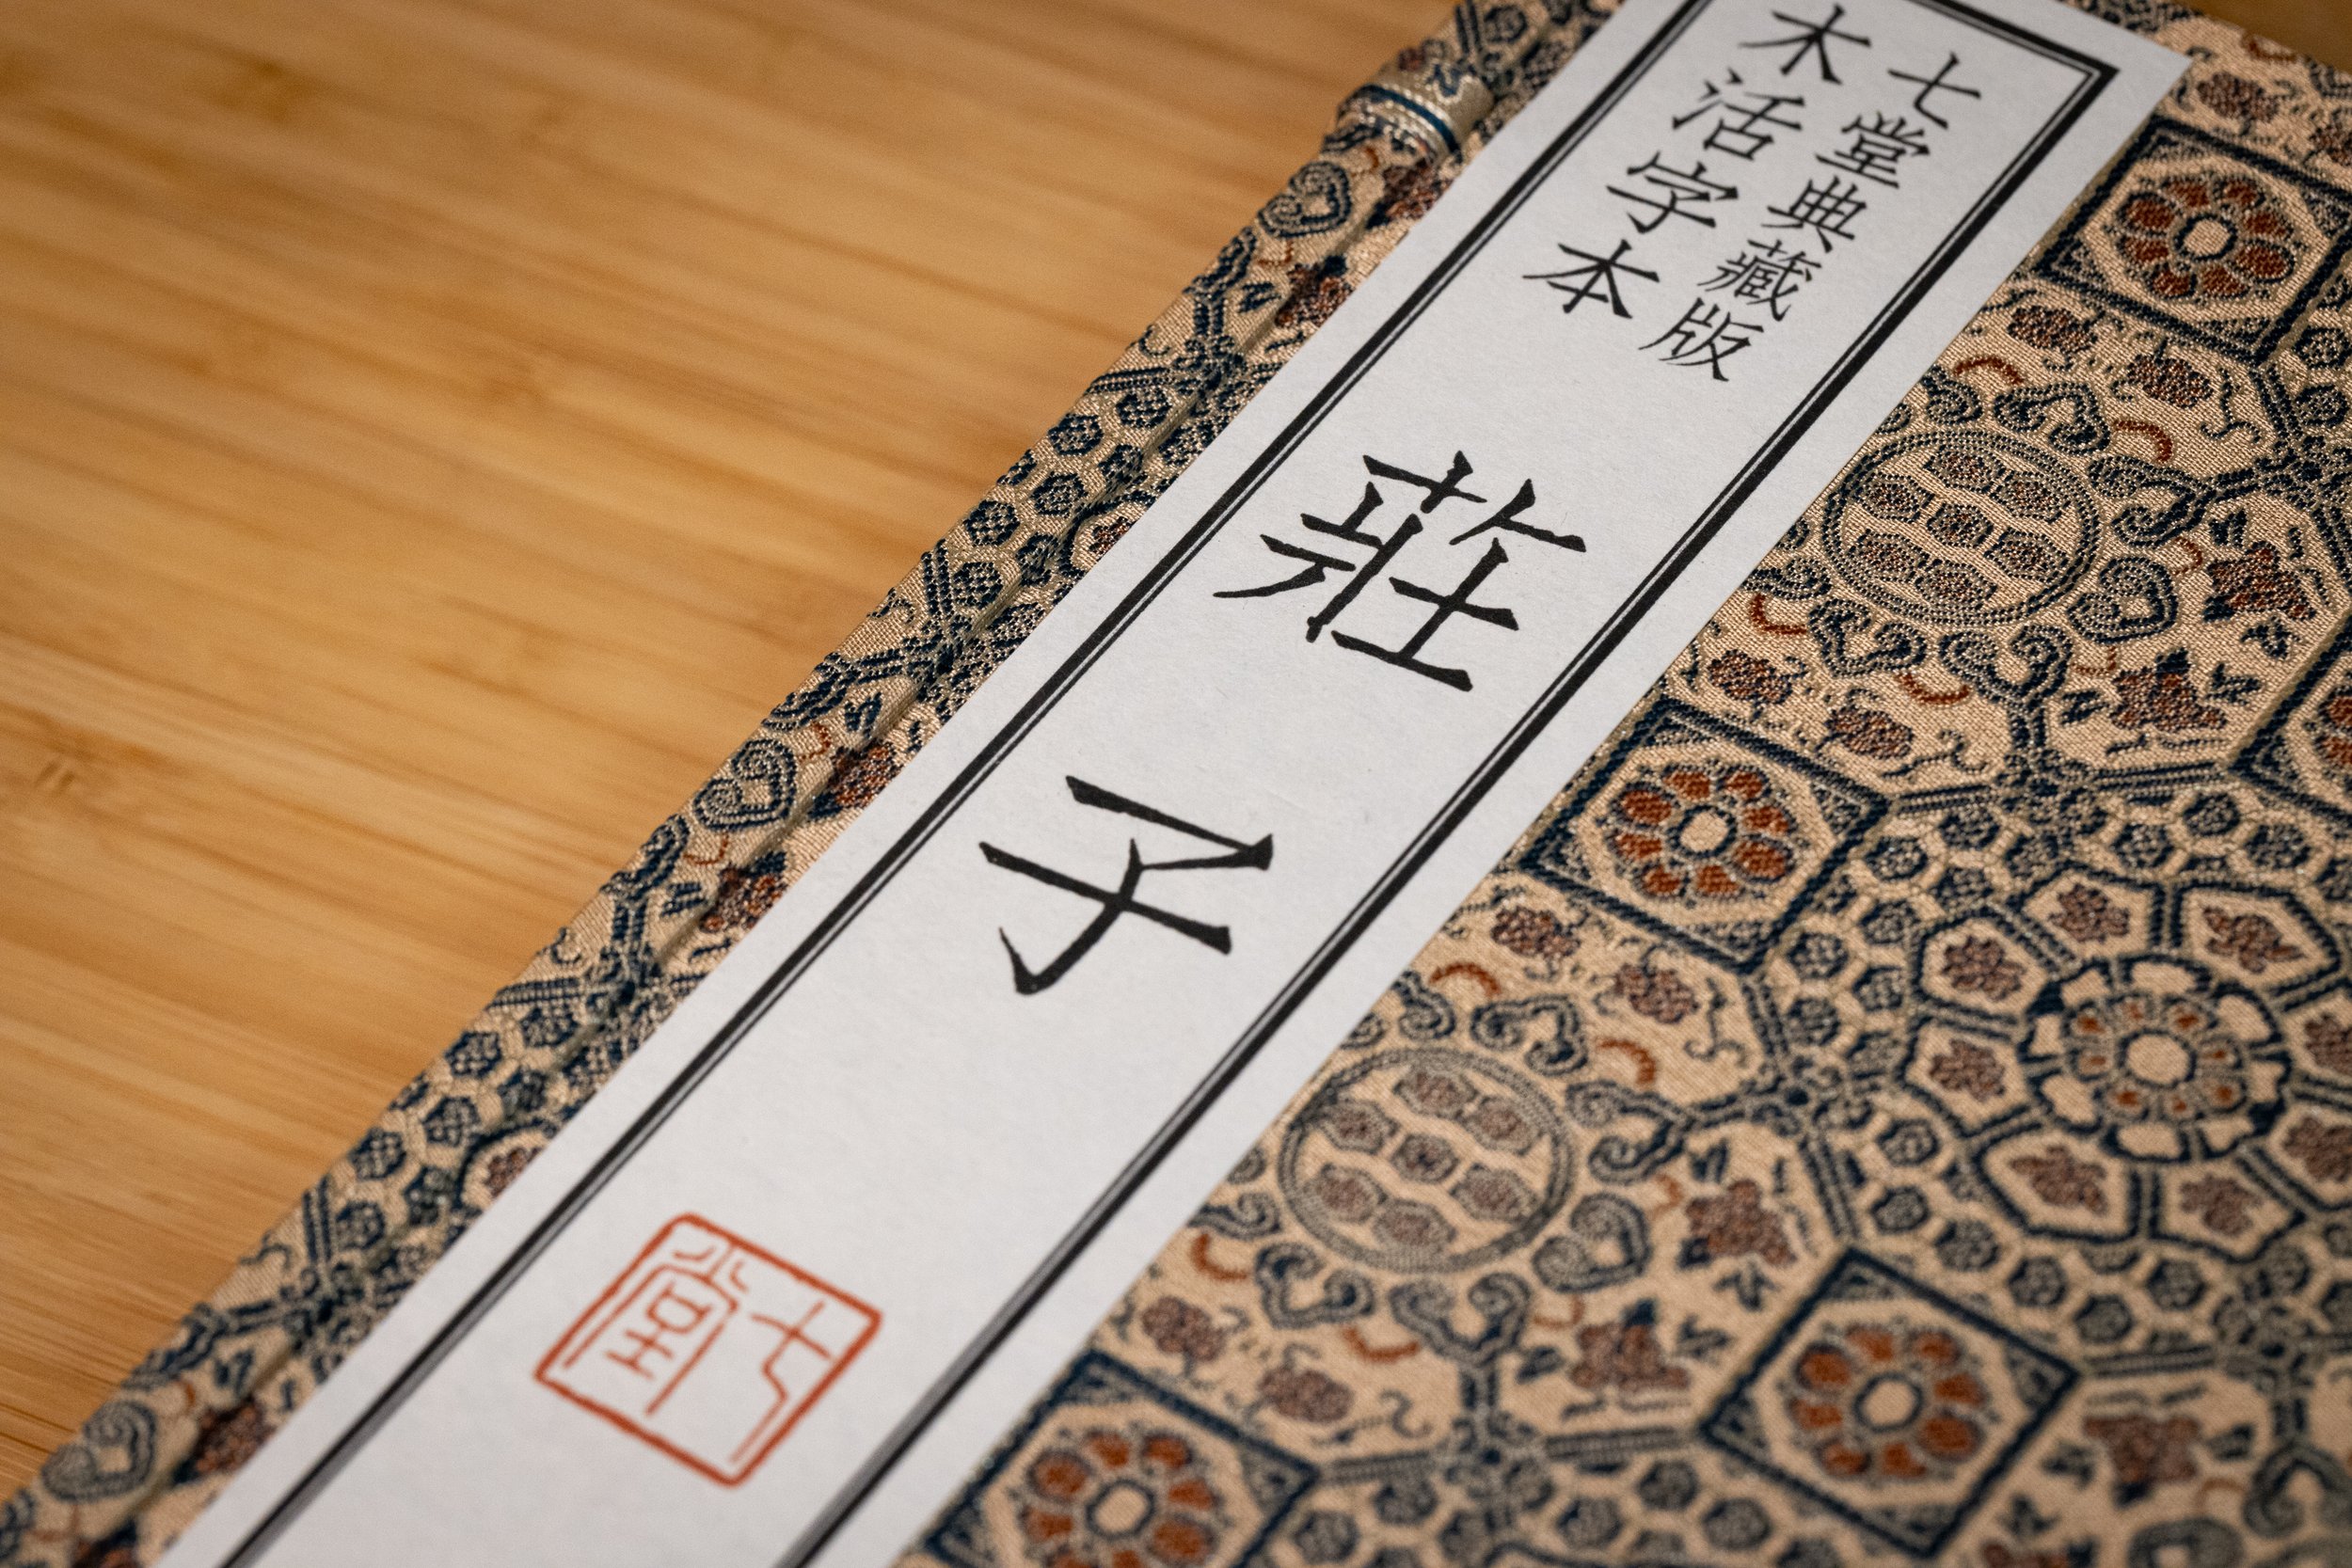 七堂典藏版
木活字本
莊子
七堂